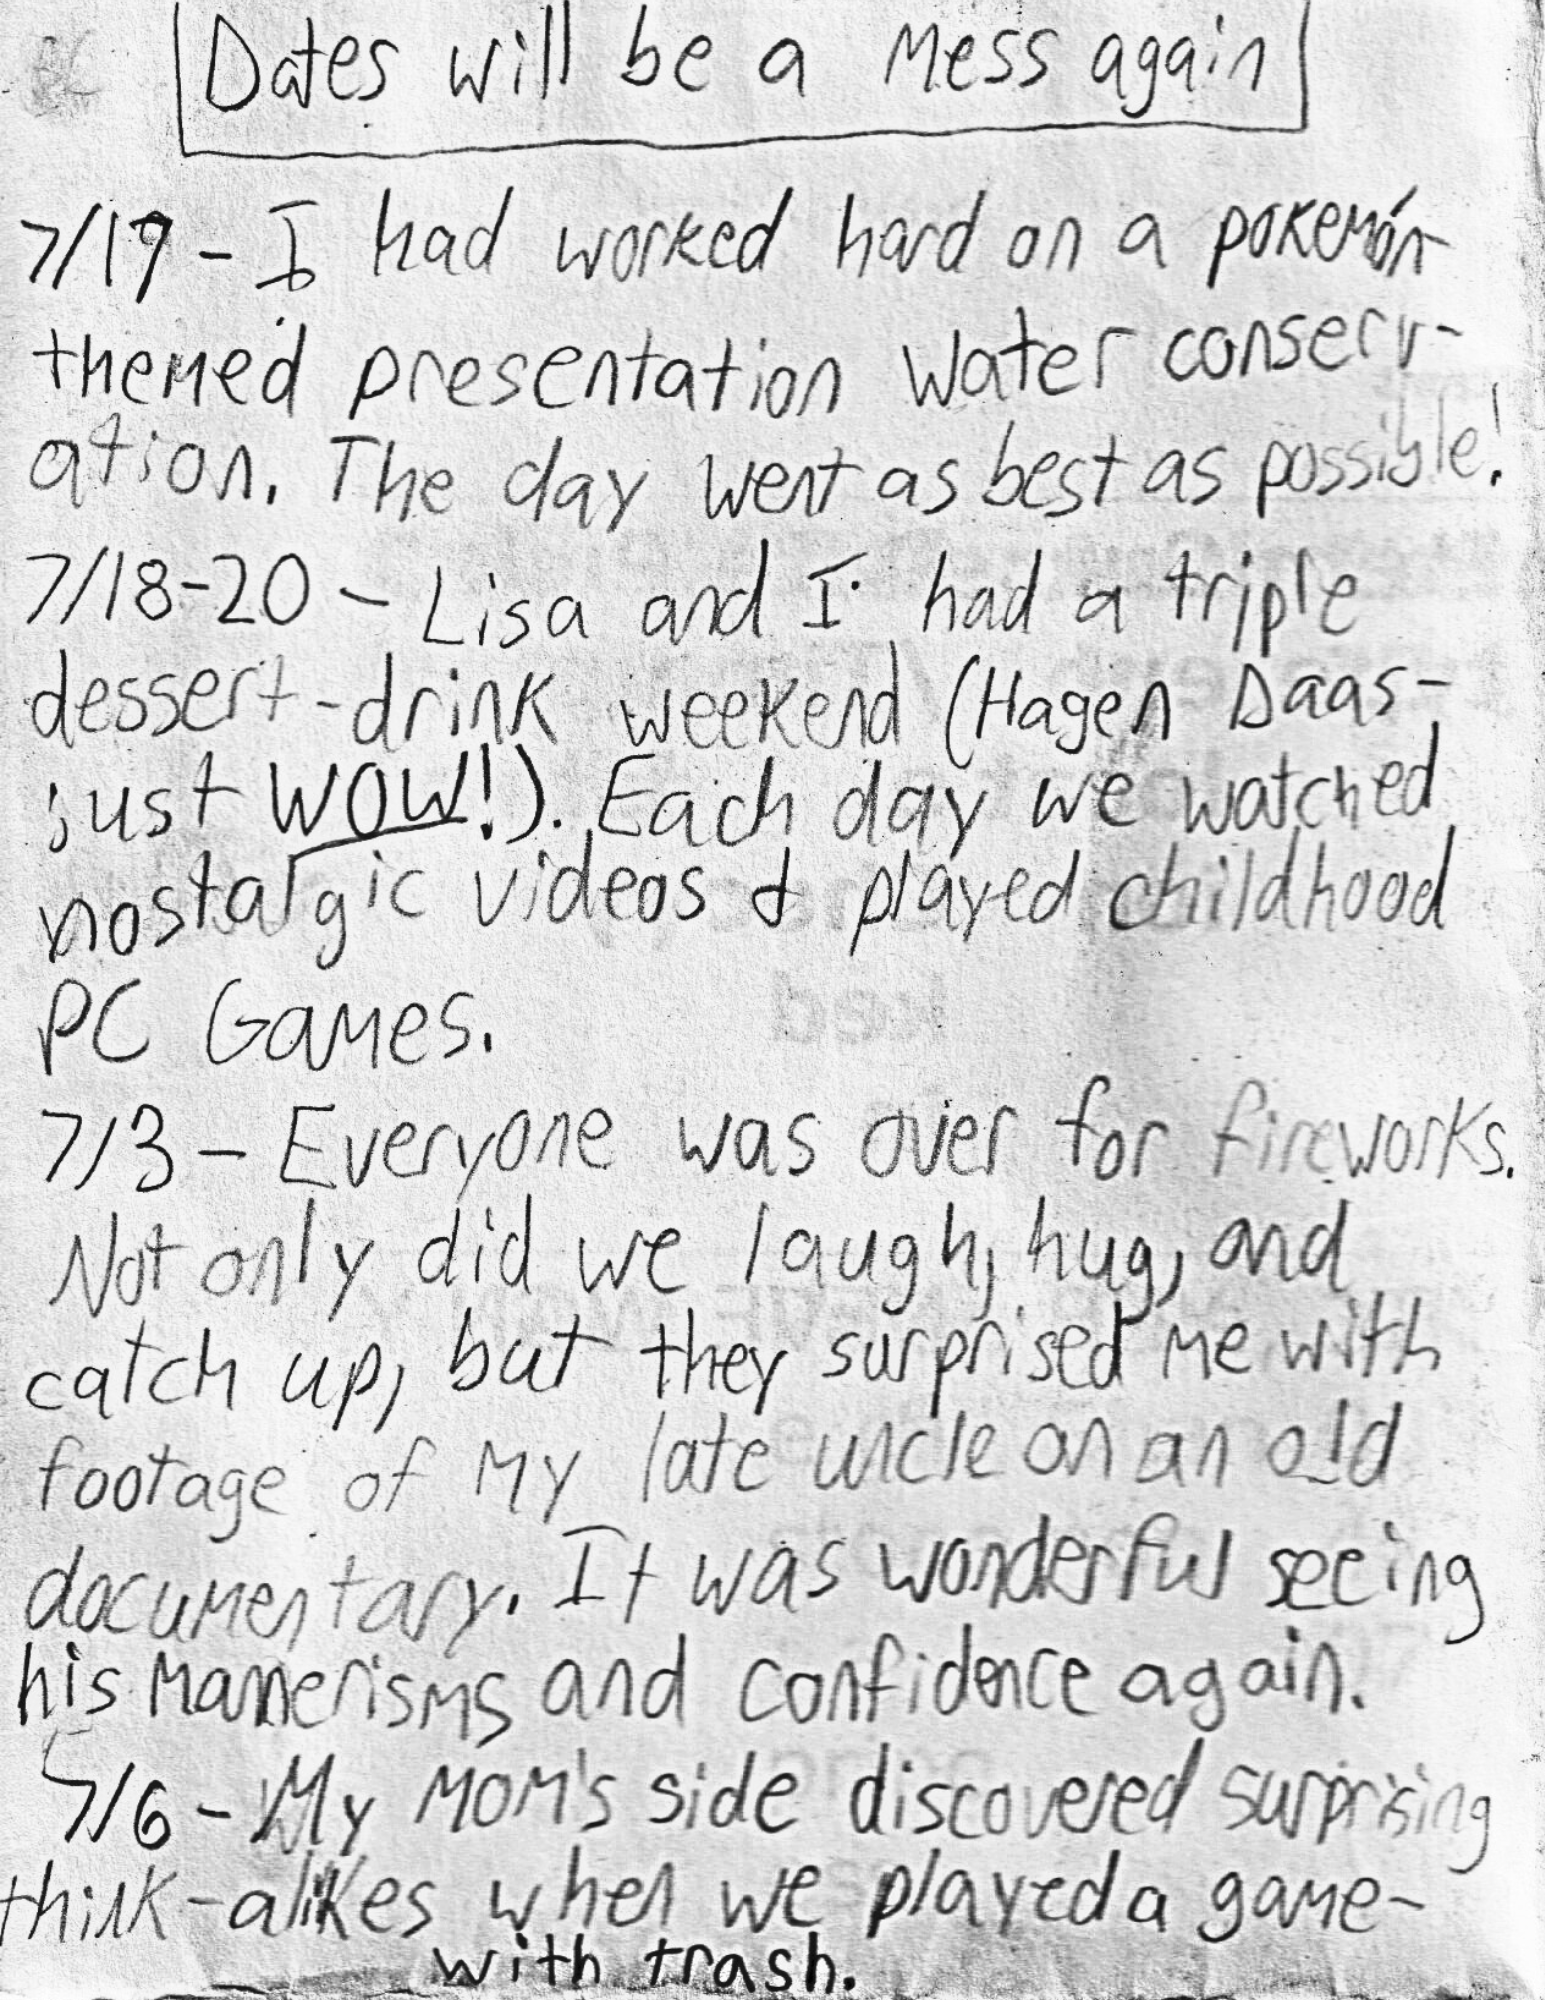 Dates will be a Mess again
7/19 - I had worked hard on a pokemón
themed presentation water conserv-
ation. The day went as best as possible!
7/18-20 - Lisa and I had a triple
dessert-drink weekend (Hagen Daas-
just WOW!). Each day we watched
nostalgic videos & played childhood
PC Games.
7/3 - Everyone was over for fireworks.
Not only did we laugh, hug, and
catch up, but they surprised me with
footage of my late uncle on an old
documentary. It was wonderful seeing
his mannerisms and confidence again.
7/6 - My mom's side discovered surprising
think-alikes when we played a game-
with trash.